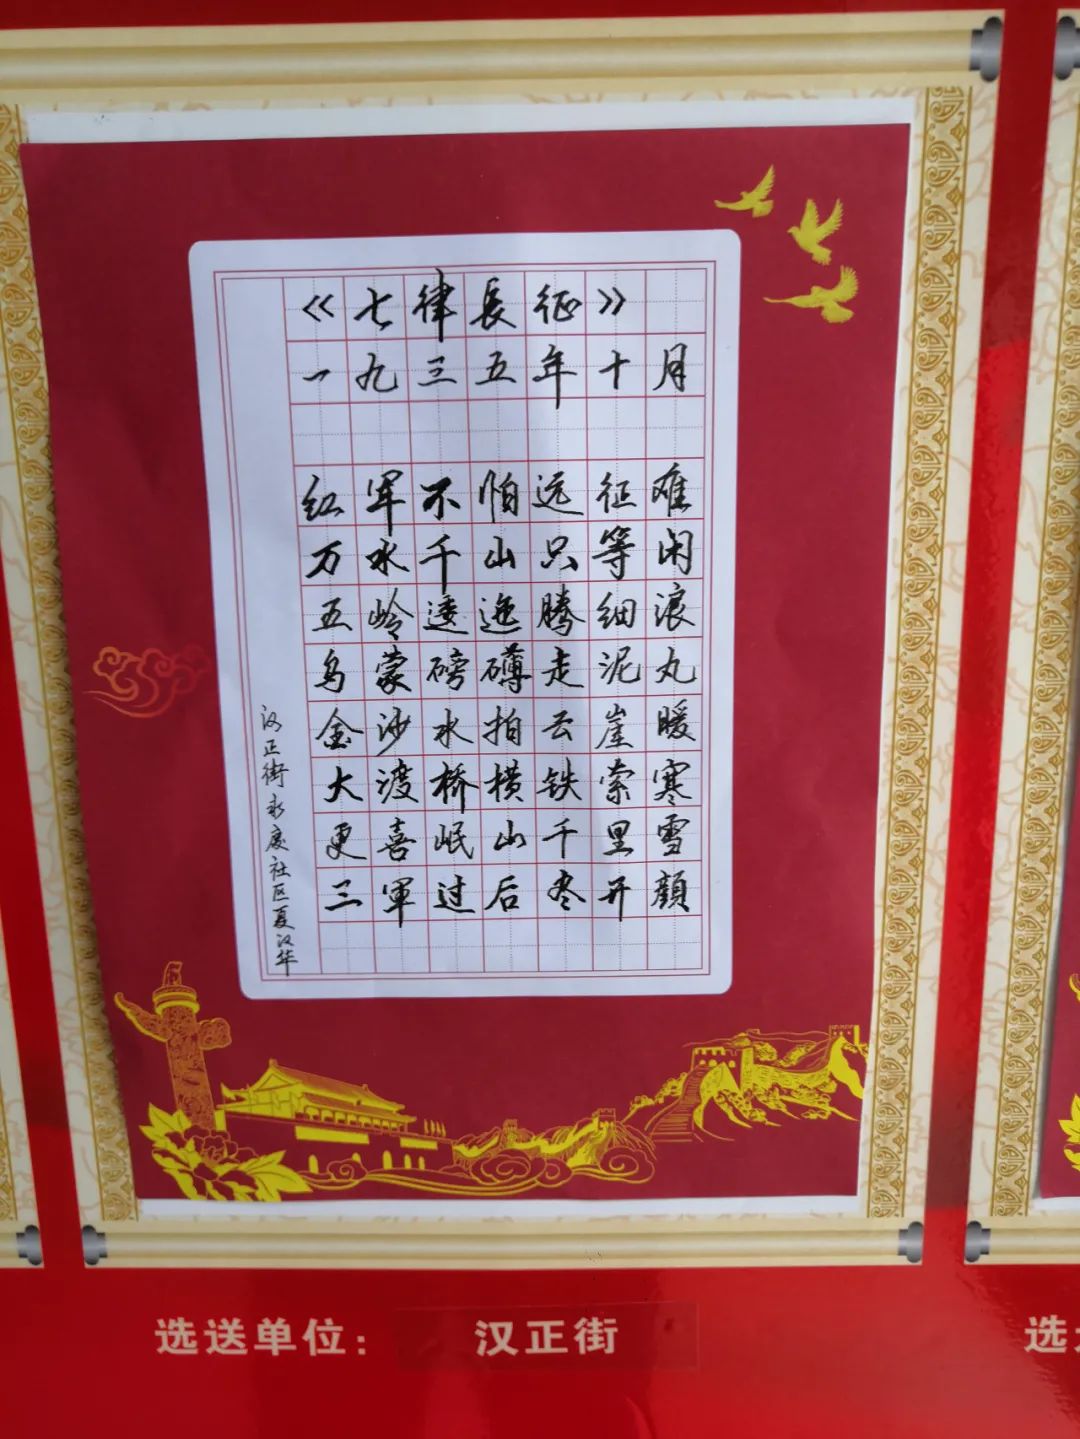 《七律長征》
一九三五年十月
红军不怕远征难
万水千山只等闲
五岭逶迤腾细浪
乌蒙磅礴走泥丸
金沙水拍云崖暖
大渡桥横铁索寒
更喜岷山千里雪
三軍过后尽开颜
汉正街永庆社区夏汉华
选送单位：汉正街
选